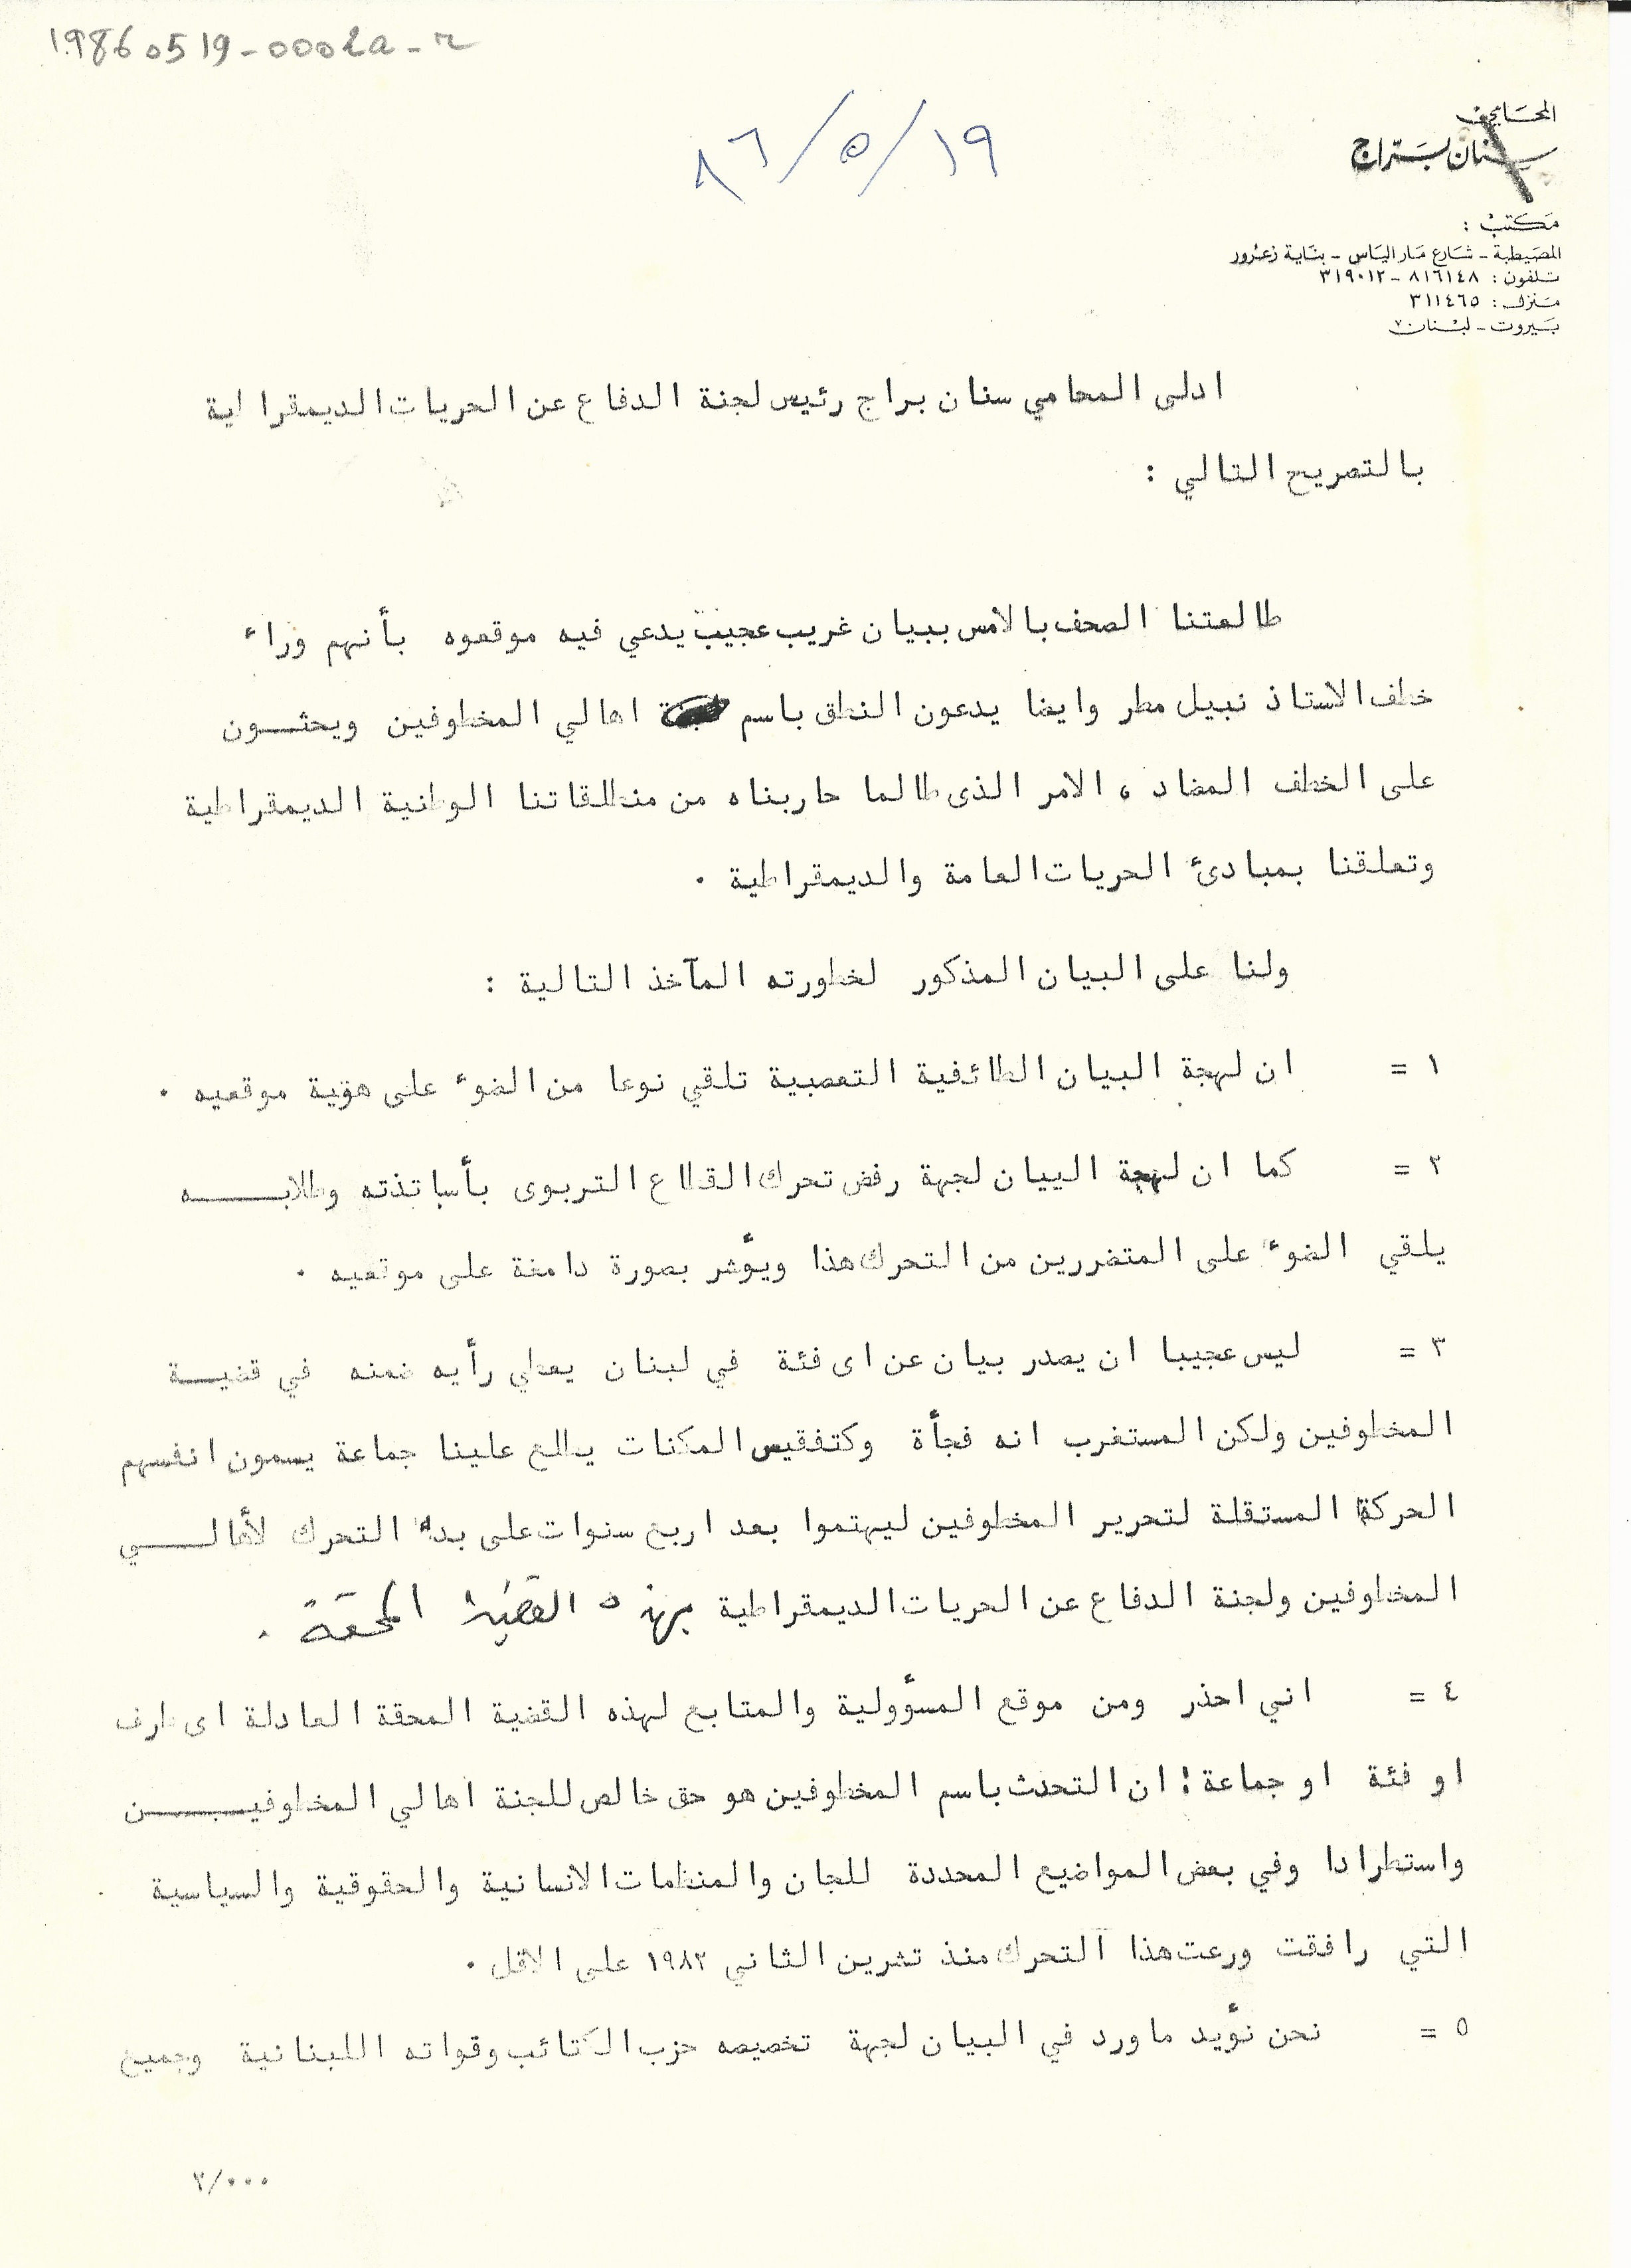 19860519-0002a-r
١٩/٥/٨٦
المحَامي
سنان بـرّاج
مَكتبْ :
المصَيطبة - شارع مَار اليَاس - بنَاية زعرُور
تلفون : ٨١٦١٤٨ - ٣١٩٠١٢
مَنزل : ٣١١٤٦٥
بَيروت - لبْنان
ادلى المحامي سنان براج رئيس لجنة الدفاع عن الحريات الديمقراطية
بالتصريح التالي :
طالعتنا الصحف بالامس ببيان غريب عجيب يدعي فيه موقعوه بأنهم وراء
خطف الاستاذ نبيل مطر وايضا يدعون النطق باسم اهالي المخطوفين ويحثـــون
على الخطف المضاد ، الامر الذى طالما حاربناه من منطلقاتنا الوطنية الديمقراطية
وتعلقنا بمبادئ الحريات العامة والديمقراطية .
ولنا على البيان المذكور لخطورته المآخذ التالية :
١ = ان لهجة البيان الطائفية التعصبية تلقي نوعا من الضوء على هوية موقعيه .
٢ = كما ان لهجة البيان لجهة رفض تحرك القطاع التربوى بأساتذته وطلابــــه
يلقي الضوء على المتضررين من التحرك هذا ويؤشر بصورة دامغة على موقعيه .
٣ = ليس عجيبا ان يصدر بيان عن اى فئة في لبنان يعطي رأيه ضمنه في قضيـــة
المخطوفين ولكن المستغرب انه فجأة وكتفقيس المكنات يطلع علينا جماعة يسمون انفسهم
الحركة المستقلة لتحرير المخطوفين ليهتموا بعد اربع سنوات على بدء التحرك لأهالـــــي
المخطوفين ولجنة الدفاع عن الحريات الديمقراطية بهذه القضية المحقة .
٤ = اني احذر ومن موقع المسؤولية والمتابع لهذه القضية المحقة العادلة اى طرف
او فئة او جماعة : ان التحدث باسم المخطوفين هو حق خالص للجنة اهالي المخطوفيـــــن
واستطرادا وفي بعض المواضيع المحددة للجان والمنظمات الانسانية والحقوقية والسياسية
التي رافقت ورعت هذا التحرك منذ تشرين الثاني ١٩٨٢ على الاقل .
٥ = نحن نؤيد ما ورد في البيان لجهة تخصيصه حزب الكتائب وقواته اللبنانية وجميع
٢/٠٠٠